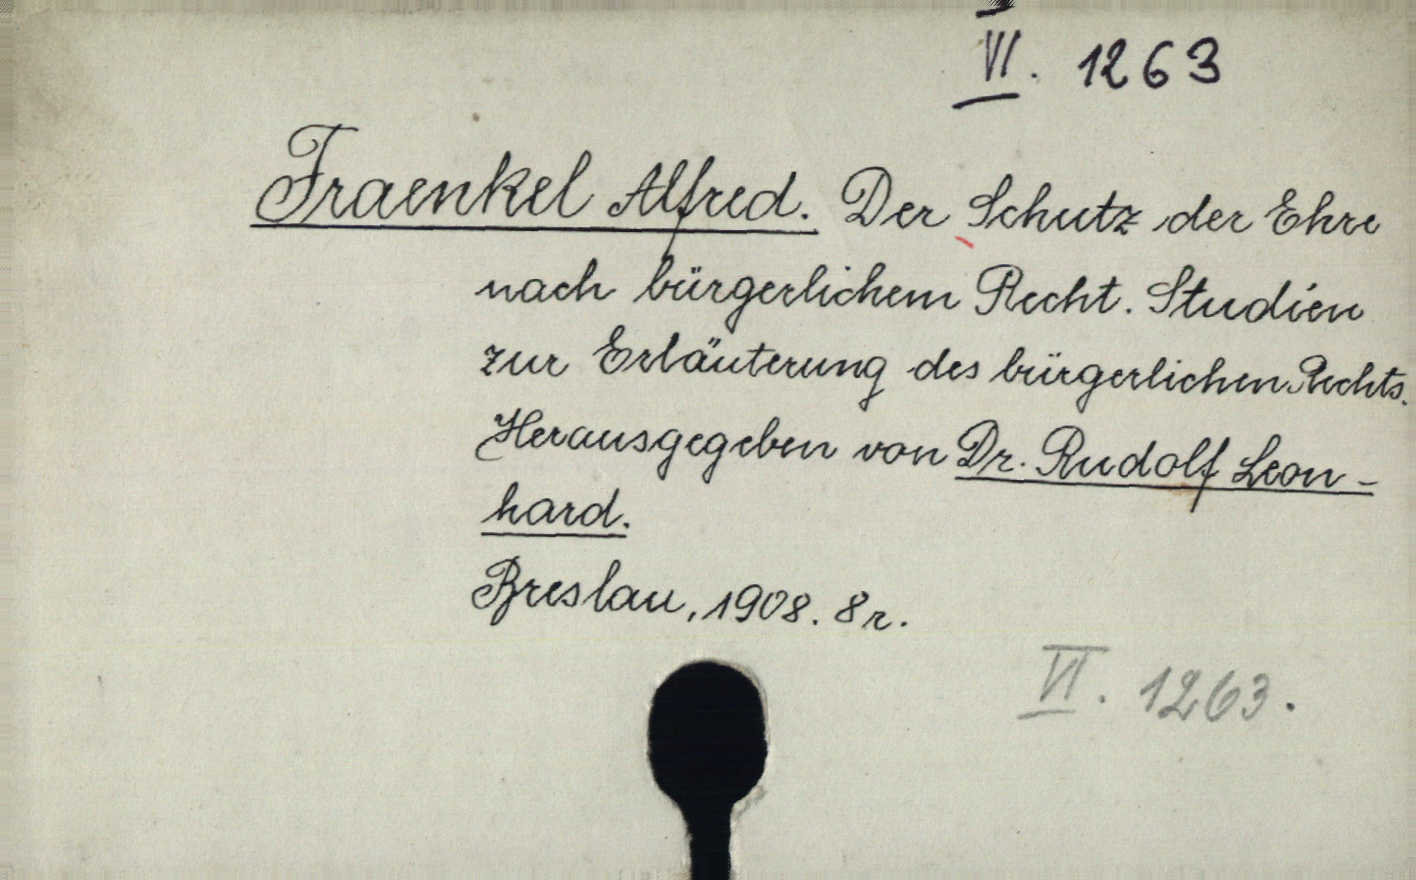 VI. 1263
Fraenkel Alfred. Der Schutz der Ehre
nach bürgerlichem Recht. Studien
zur Erläuterung des bürgerlichen Rechts.
Herausgegeben von Dr. Rudolf Leon-
hard.
Breslau, 1908. 8r.
VI. 1263.